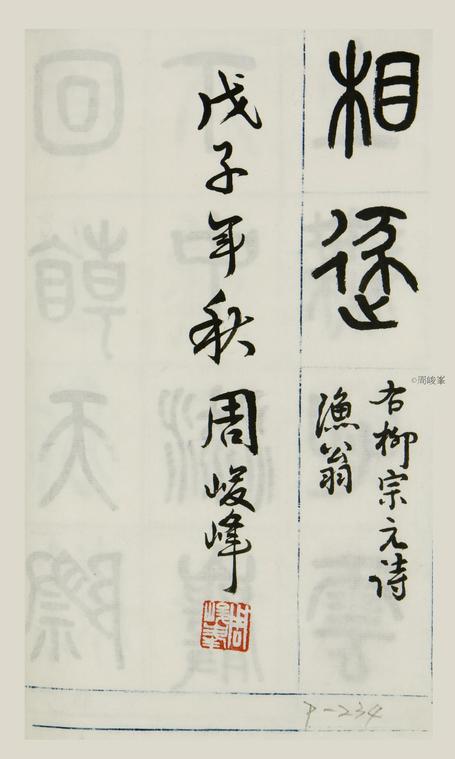 相逐
右柳宗元诗
渔翁
戊子年秋周峻峰
周峻峯
©周峻峯
P-234